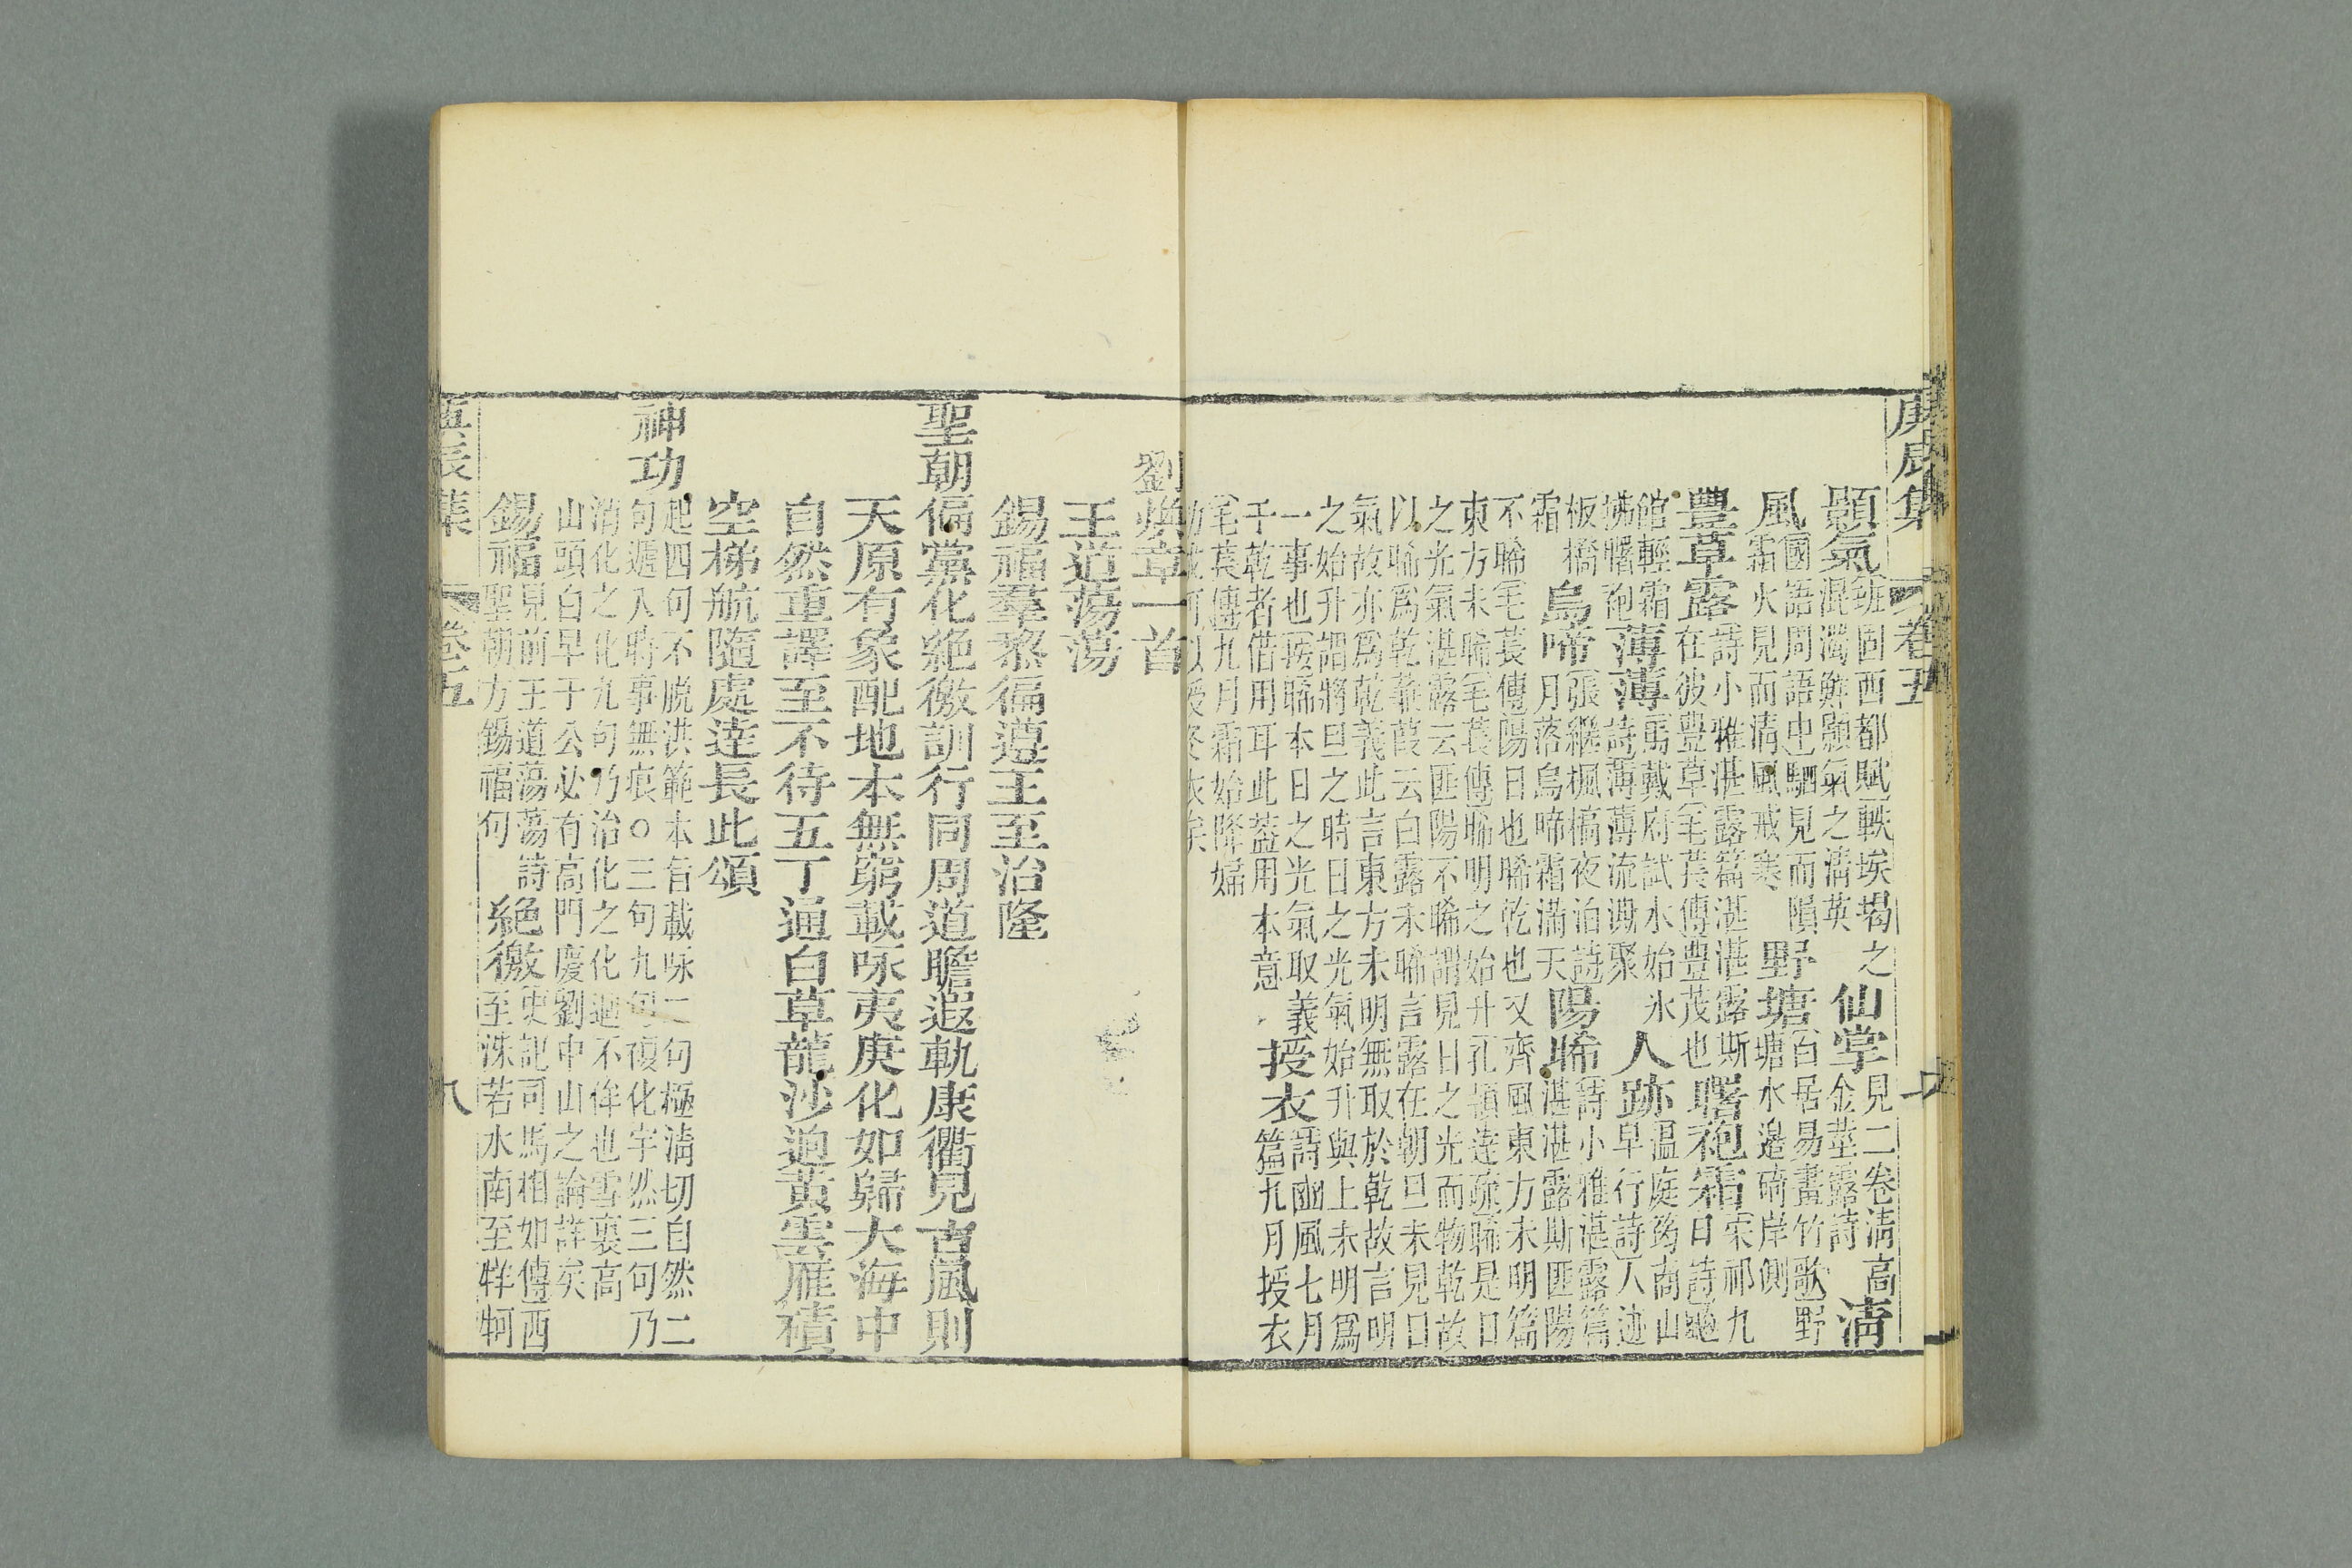 庚辰集 卷五
顥氣班固西都賦軼埃堨之
混濁鮮顥氣之淸英
仙掌見二卷淸高
金莖露詩
淸
風國語周語中駟見而隕
霜火見而淸風戒寒
野塘白居易畫竹歌野
塘水邉碕岸側
豐草露詩小雅湛露篇湛湛露斯
在彼豐草毛萇傳豐茂也
曙袍霜宋祁九
日詩
館輕霜
拂曙袍
薄薄馬戴府試水始氷
詩薄薄流澌聚
人跡温庭筠商山
早行詩人迹
板橋
霜
烏啼張繼楓橋夜泊詩
月落烏啼霜滿天
陽晞詩小雅湛露篇
湛湛露斯匪陽
不晞毛萇傳陽日也晞乾也又齊風東方未明篇
東方未晞毛萇傳晞明之始升孔穎達疏晞是日
之光氣湛露云匪陽不晞謂見日之光而物乾故
以晞爲乾蒹葭云白露未晞言露在朝旦未見日
氣故亦爲乾義此言東方未明無取於乾故言明
之始升謂將旦之時日之光氣始升與上未明爲
一事也按晞本日之光氣取義
于乾者借用耳此葢用本意
授衣詩豳風七月
篇九月授衣
毛萇傳九月霜始降婦
功成可以授冬衣矣
劉煥章一首
王道蕩蕩
錫福羣黎徧遵王至治隆
聖朝偏黨化絶徼訓行同周道瞻遐軌康衢見古風則
天原有象配地本無窮載咏夷庚化如歸大海中
自然重譯至不待五丁通白草龍沙逈黃雲雁磧
空梯航隨處達長此頌
神功起四句不脱洪範本旨載咏二句極淸切自然二
句遞入時事無痕○三句九句複化字然三句乃
消化之化九句乃治化之化迥不侔也雪裏高
山頭白早于公必有高門慶劉中山之論詳矣
錫福見前王道蕩蕩詩
聖朝方錫福句
絶徼史記司馬相如傳西
至沬若水南至牂牁
庚辰集 卷五 八